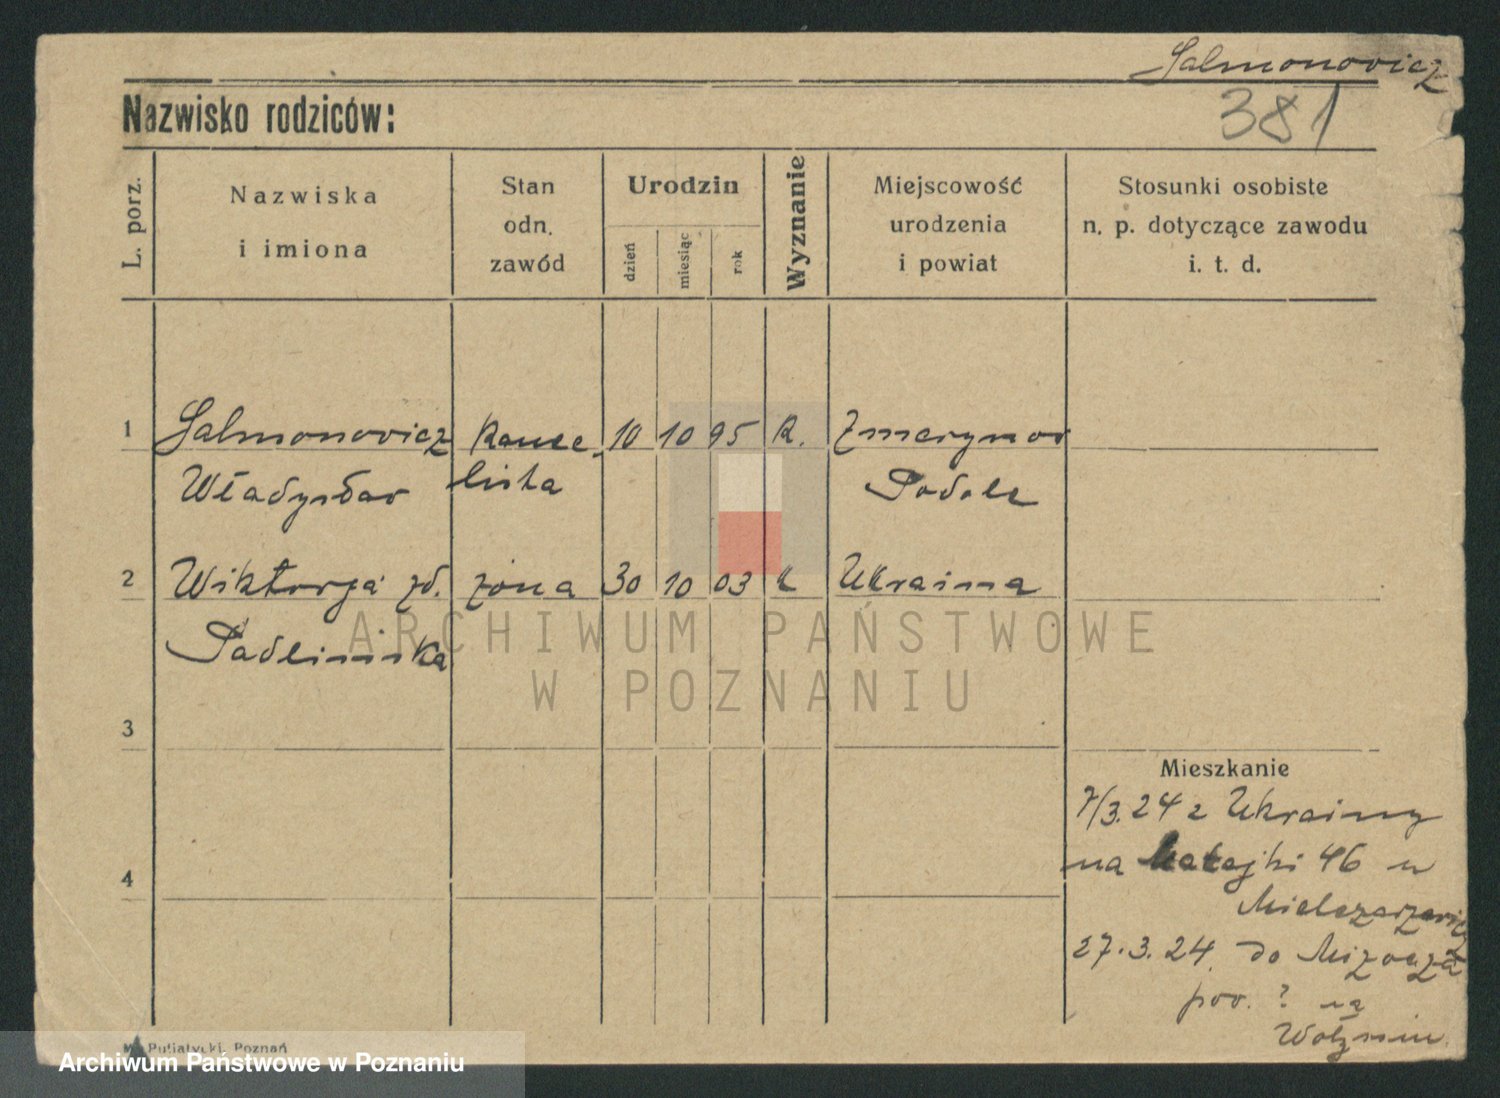 Salmonowicz
381
Nazwisko rodziców:
L. porz.
Nazwiska
i imiona
Stan
odn.
zawód
Urodzin
dzień
miesiąc
rok
Wyznanie
Miejscowość
urodzenia
i powiat
Stosunki osobiste
n. p. dotyczące zawodu
i. t. d.
1 Salmonowicz Kance- 10 10 95 K. Żmerynow
Władysław lista Podole
2 Wiktorja zd. żona 30 10 03 K Ukraina
Padlinska
3
4
Mieszkanie
7/3.24 z Ukrainy
na 46 u
27.3.24. do Mizocza
pow. ? na
Wołyniu.
Putiatycki, Poznań
ARCHIWUM PAŃSTWOWE
W POZNANIU
Archiwum Państwowe w Poznaniu